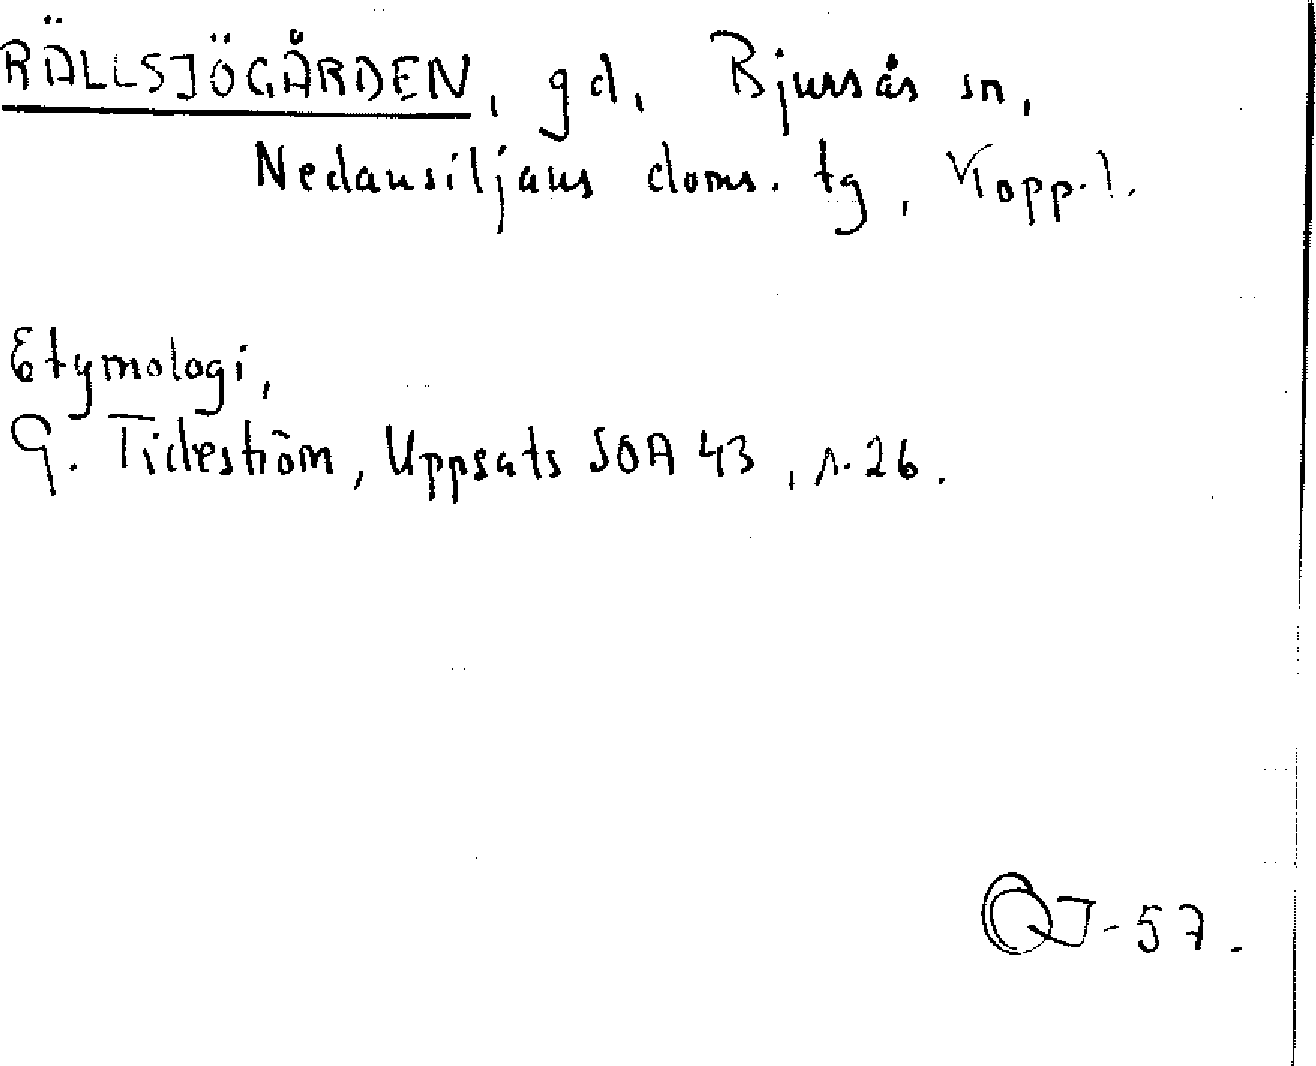 RÄLLSJÖGÅRDEN, gd, Bjursås sn,
Nedansiljans doms. tg, Kopp. l.
Etymologi,
G. Tideström, Uppsats SOA 43, s. 26.
QJ-57.